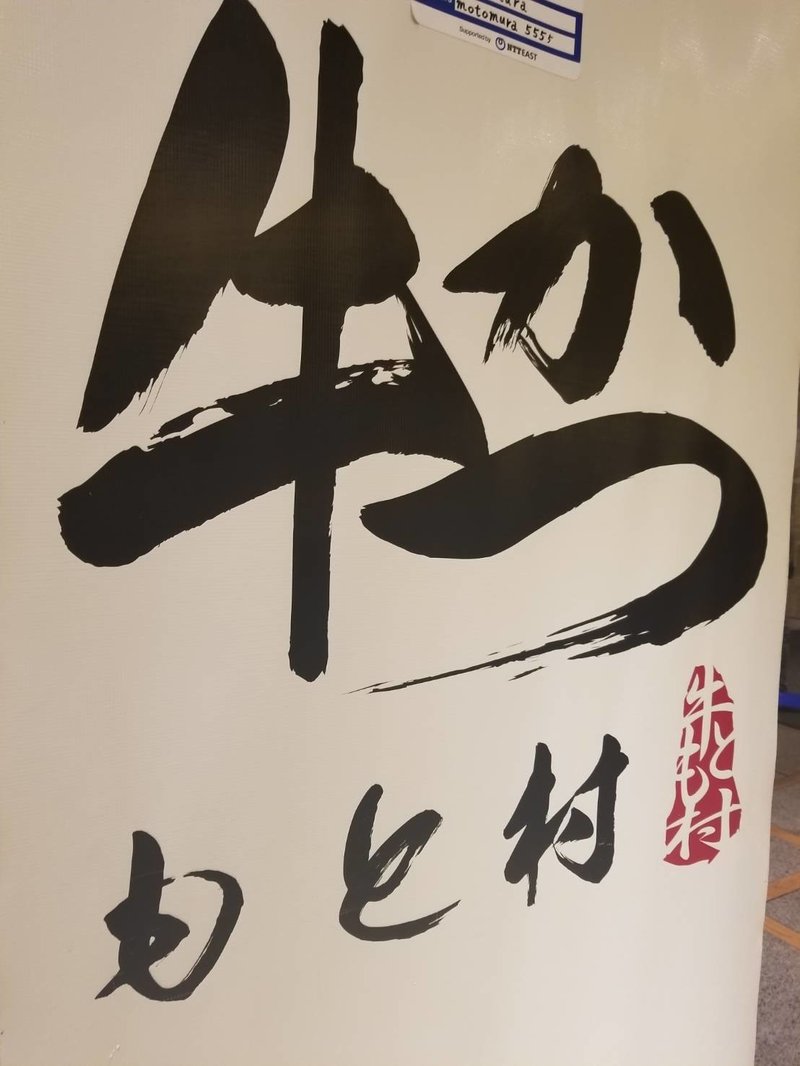 motomura 5555
Supported by NTT EAST
牛かつ
もと村
牛もと村